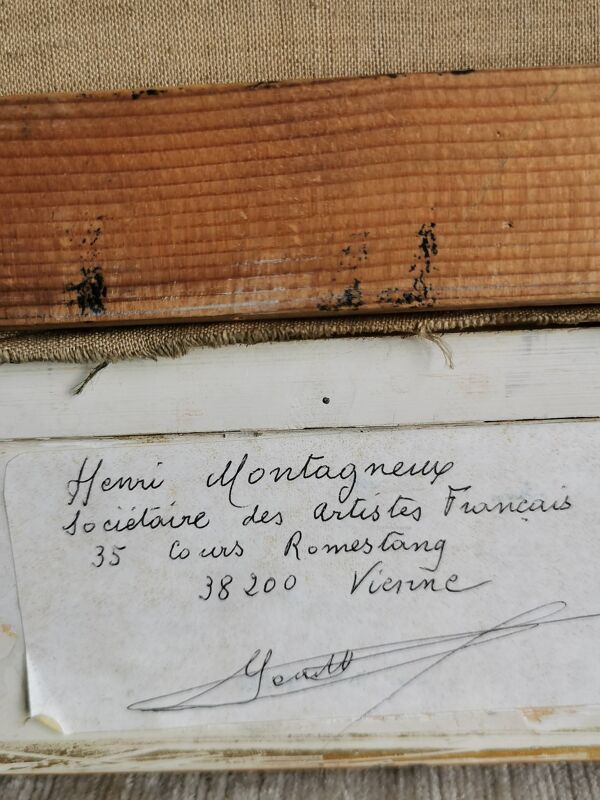 Henri Montagneux
Sociétaire des Artistes Français
35 Cours Romestang
38200 Vienne